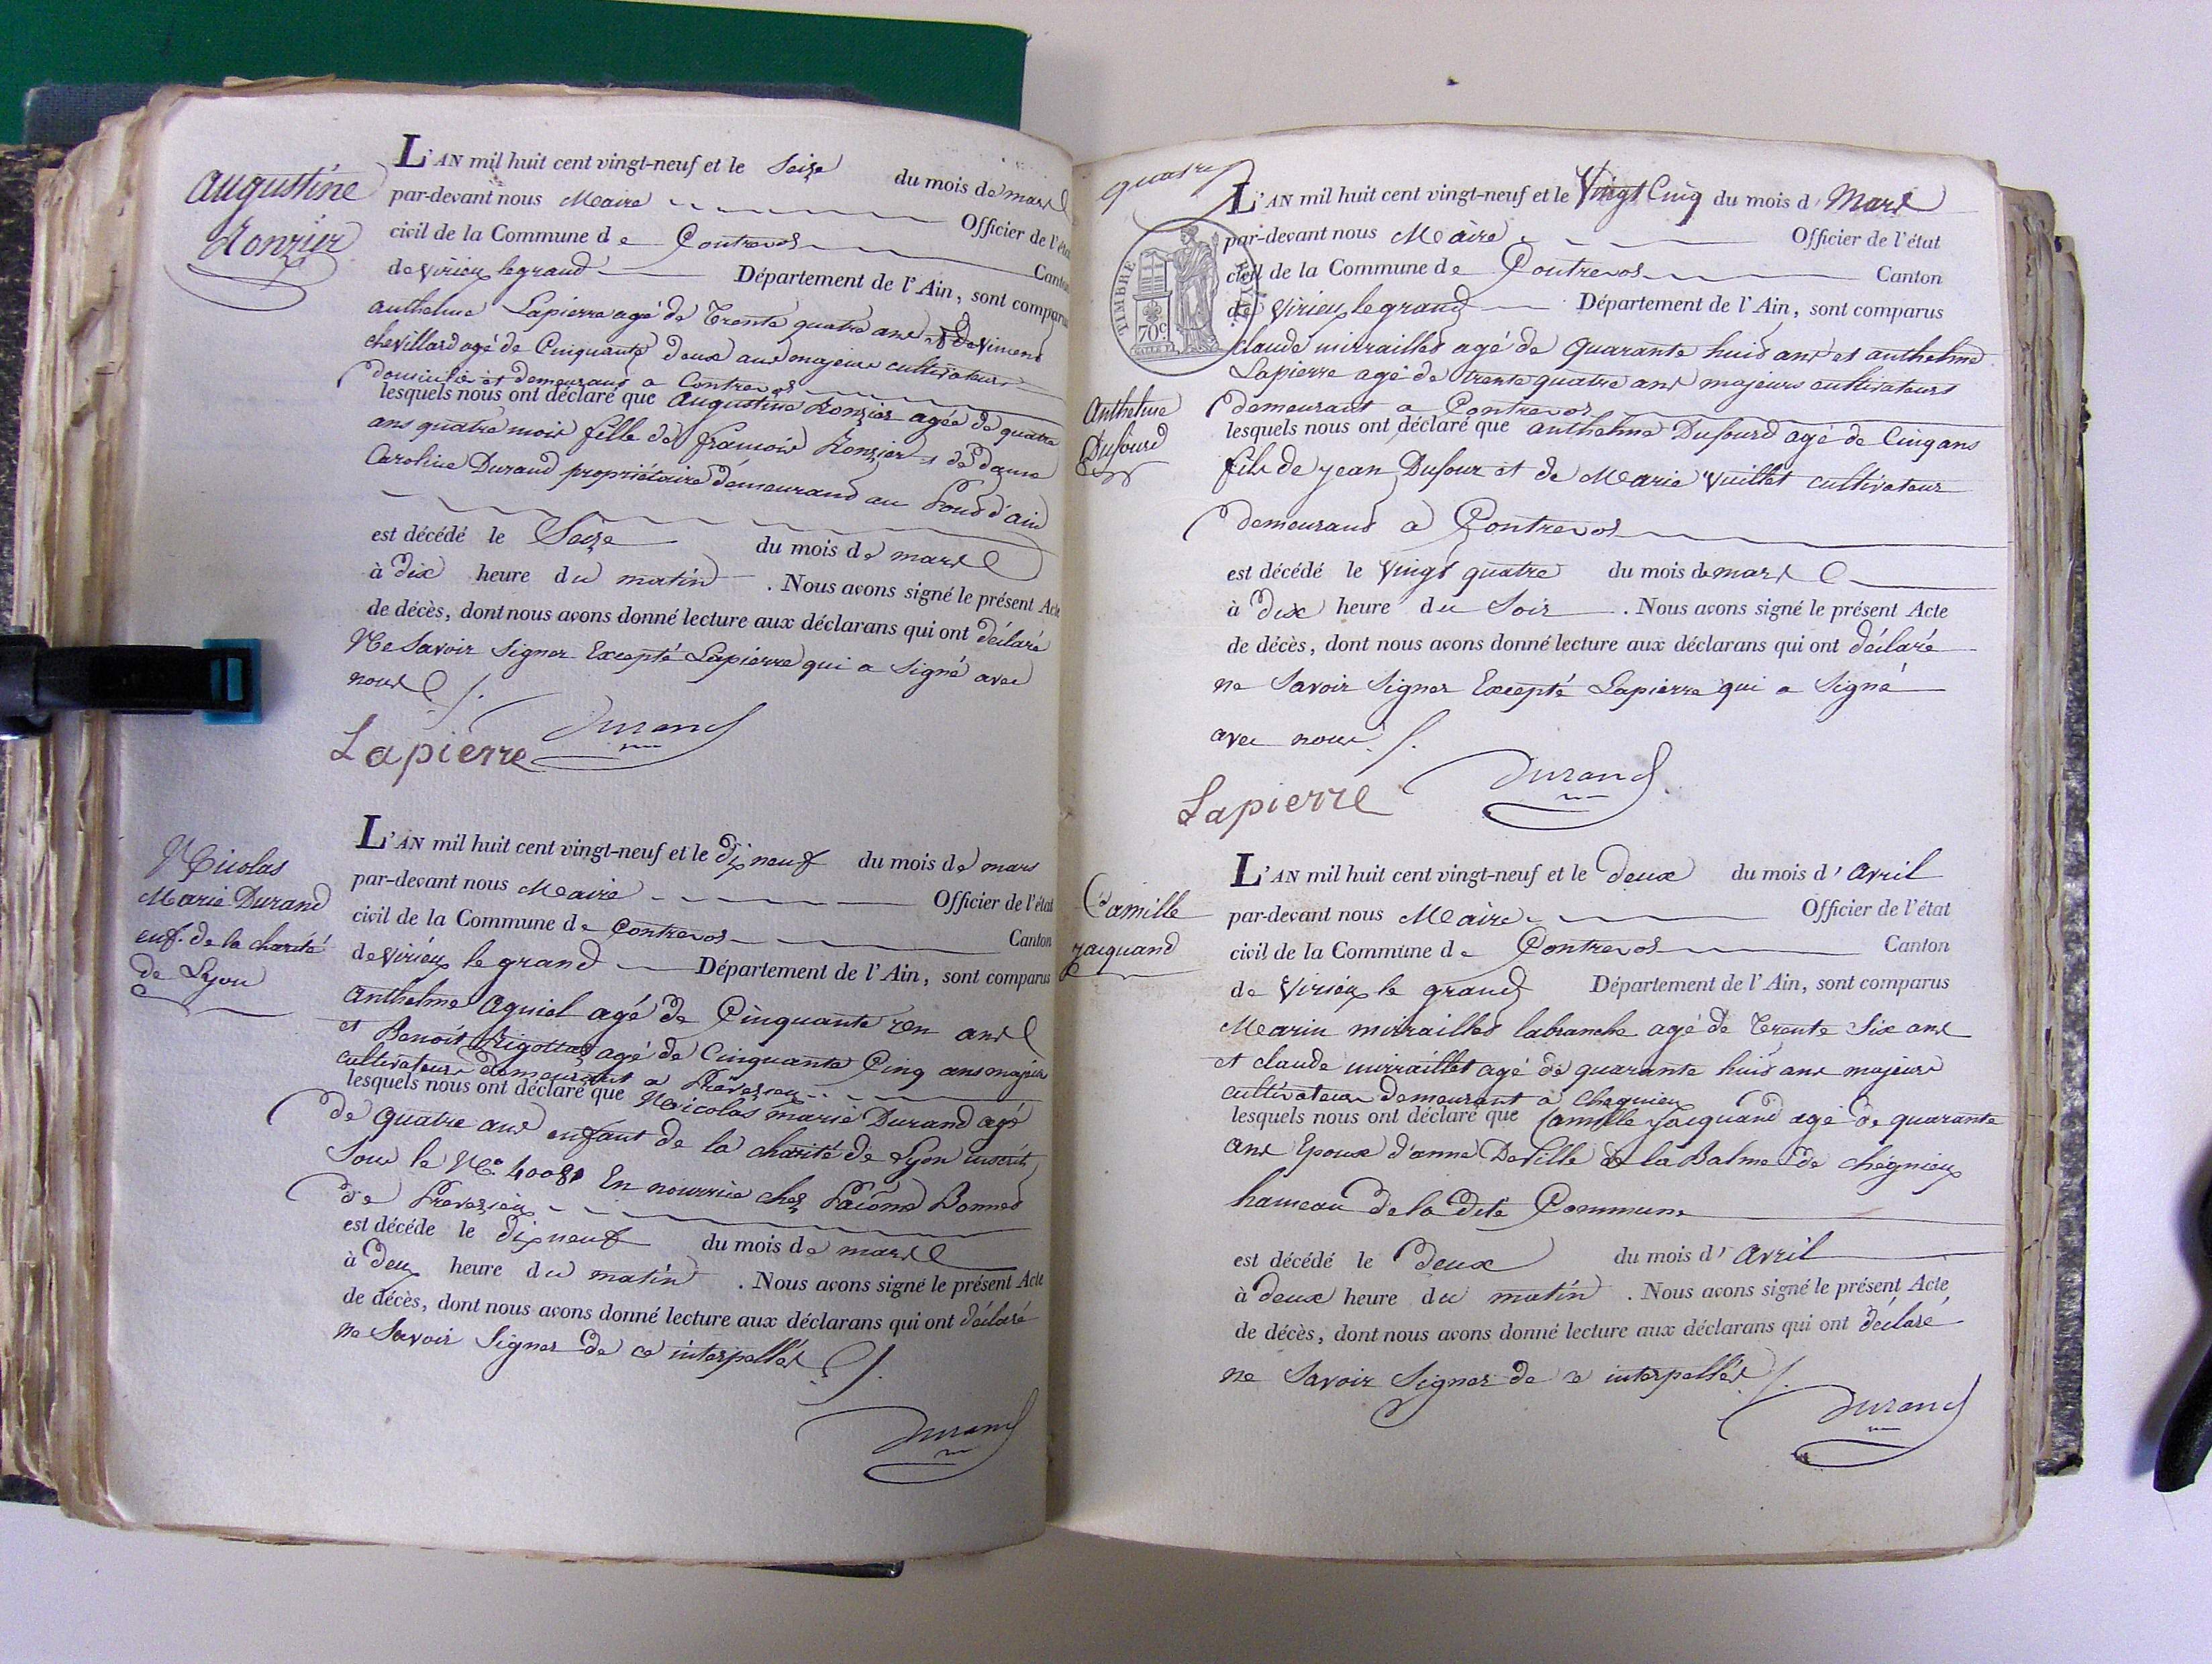 Augustine
Ronzier
L'AN mil huit cent vingt-neuf et le Seize du mois de mars
par-devant nous Maire Officier de l'état
civil de la Commune de Contrevos Canton
de virieu legrand Département de l'Ain, sont comparus
anthelme Lapierre agé de Trente quatre ans et
chevillard agé de Cinquante deux ans majeurs cultivateurs
domicilié et demeurand a Contrevos
lesquels nous ont déclaré que Augustine Ronzier agée de quatre
ans quatre mois fille de françois Ronzier et de dame
Caroline Durand propriétaire demeurand au Pond d'ain
est décédé le Seize du mois de mars
à dix heure du matin. Nous avons signé le présent Acte
de décès, dont nous avons donné lecture aux déclarans qui ont déclaré
Ne Savoir Signer Excepté Lapierre qui a Signé avec
nous
Lapierre Durand
Nicolas
Marie Durand
enf. de la charité
de Lyon
L'AN mil huit cent vingt-neuf et le dixneuf du mois de mars
par-devant nous Maire Officier de l'état
civil de la Commune de Contrevos Canton
de virieu le grand Département de l'Ain, sont comparus
Anthelme agé de Cinquante ans
et Benoit agé de Cinquante Cinq ans majeurs
cultivateurs demeurant a
lesquels nous ont déclaré que Nicolas marie Durand agé
de quatre ans enfant de la charité de Lyon inscrit
Sous le No. En nourrice chez Bonnet
de
est décédé le dixneuf du mois de mars
à deux heure du matin. Nous avons signé le présent Acte
de décès, dont nous avons donné lecture aux déclarans qui ont déclaré
ne Savoir Signer de ce interpellés
Durand
quatre
TIMBRE ROYAL
70c
Anthelme
Dufourd
L'AN mil huit cent vingt-neuf et le Vingt Cinq du mois d Mars
par-devant nous Maire Officier de l'état
civil de la Commune de Contrevos Canton
de Virieu legrand Département de l'Ain, sont comparus
Claude mirailles agé de quarante huis ans et anthelme
Lapierre agé de trente quatre ans majeurs cultivateurs
demeurant a Contrevos
lesquels nous ont déclaré que anthelme Dufourd agé de Cinq ans
fils de jean Dufour et de Marie Vuillet cultivateur
demeurans a Contrevos
est décédé le Vingt quatre du mois de mars
à dix heure du Soir. Nous avons signé le présent Acte
de décès, dont nous avons donné lecture aux déclarans qui ont déclaré
ne Savoir Signer Excepté Lapierre qui a Signé
avec nous
Lapierre Durand
Camille
jacquand
L'AN mil huit cent vingt-neuf et le deux du mois d'Avril
par-devant nous Maire Officier de l'état
civil de la Commune de Contrevos Canton
de Virieu le grand Département de l'Ain, sont comparus
Marin mirailles labranche agé de Trente Six ans
et claude miraillet agé de quarante huis ans majeurs
cultivateurs demeurant a Chegnieu
lesquels nous ont déclaré que Camille jacquand agé de quarante
ans Epoux d'anne Deville de la Balme de chégnieux
hameau de la Dite Commune
est décédé le deux du mois d'Avril
à deux heure du matin. Nous avons signé le présent Acte
de décès, dont nous avons donné lecture aux déclarans qui ont déclaré
ne Savoir Signer de ce interpellés
Durand